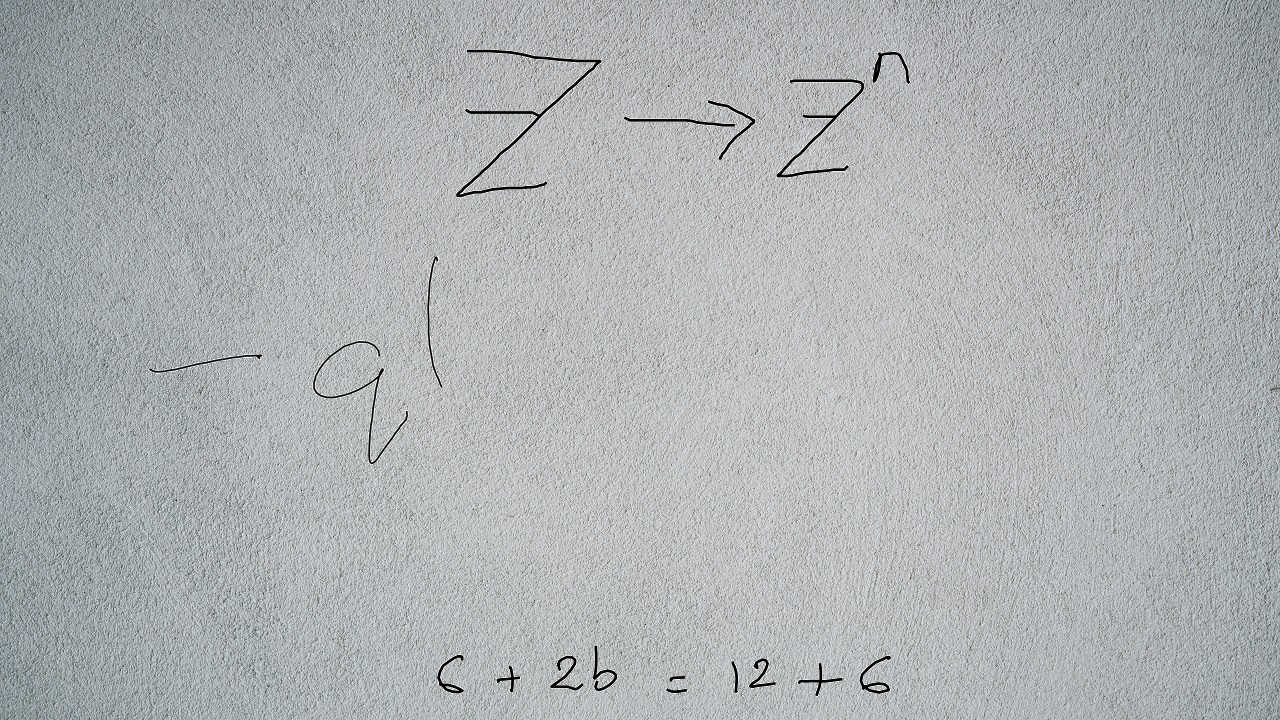 z → zⁿ
- q'
6 + 2b = 12 + 6